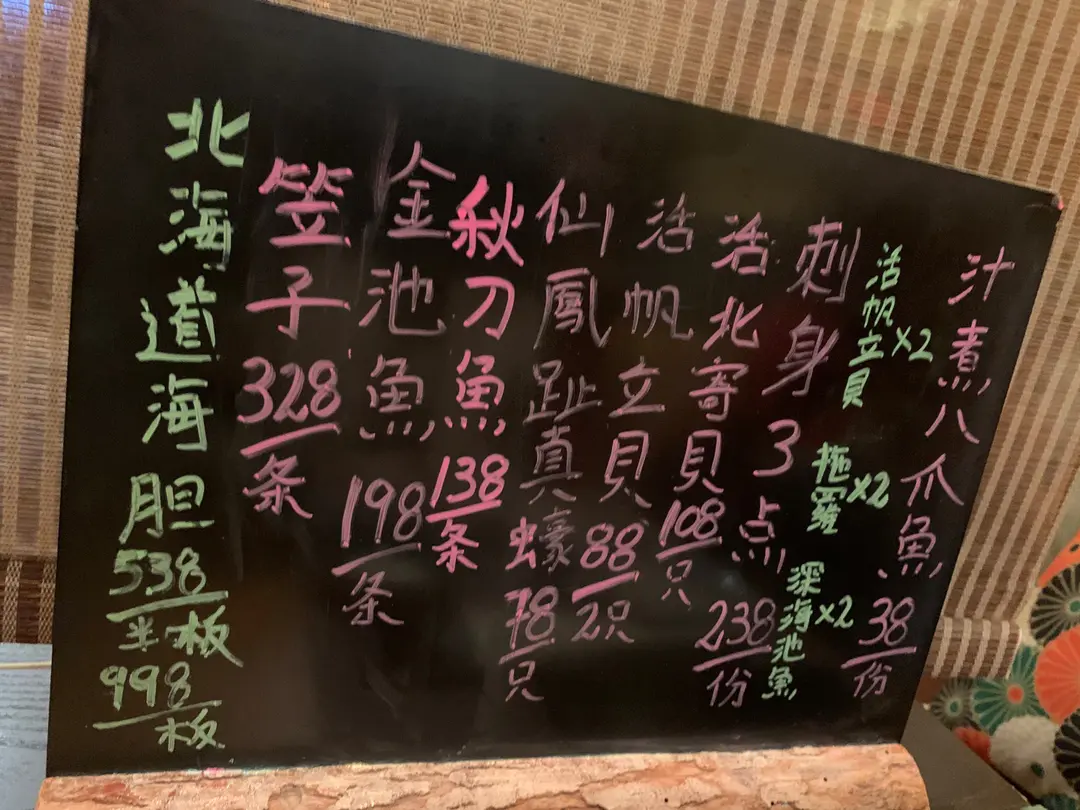 北海道海胆 538/半板 998/板
笠子 328/条
金池魚 198/条
秋刀魚 138/条
仙鳳趾真蠔 78/只
活帆立貝 88/2只
活北寄貝 108/只
刺身3点 238/份
活帆立貝X2 拖羅X2 深海池魚X2
汁煮八爪魚 38/份